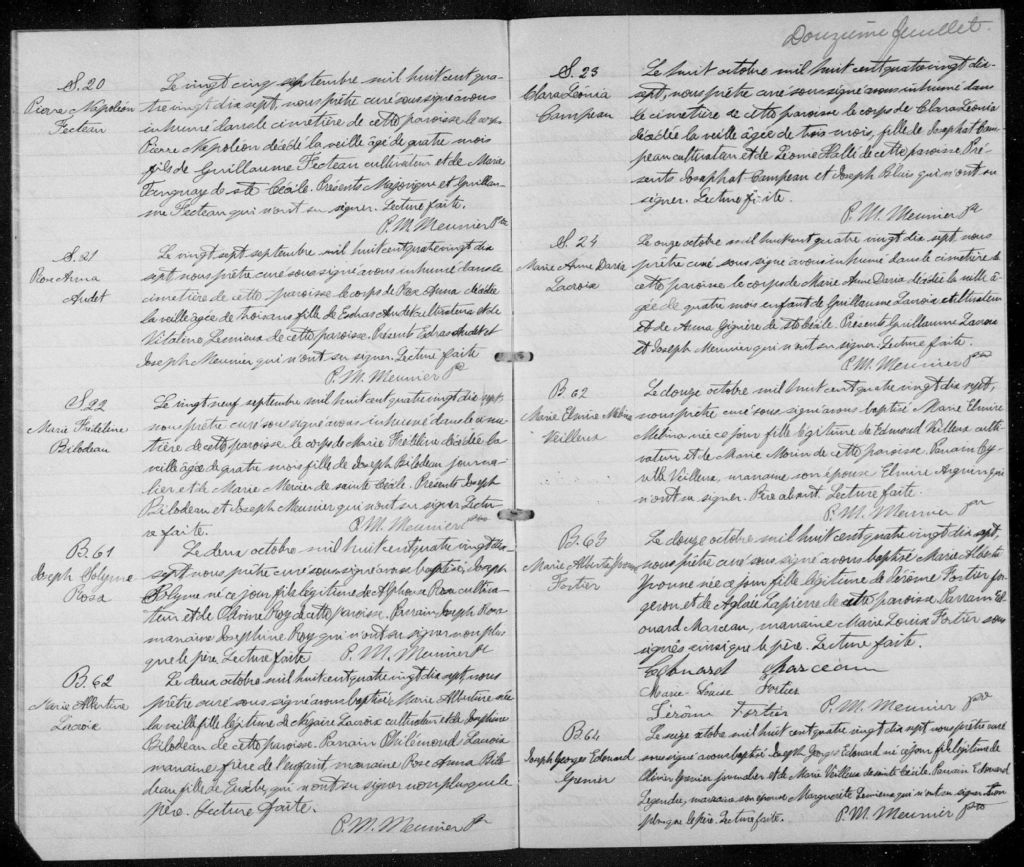 S. 20
Pierre Napoléon
Fecteau
Le vingt cinq septembre mil huit cent qua-
tre vingt dix sept, nous prêtre curé soussigné avons
inhumé dans le cimetière de cette paroisse le corps
Pierre Napoleon décédé la veille âgé de quatre mois
fils de Guillaume Fecteau cultivateur et de Marie
Tanguay de ste Cécile. Présents et Guillau-
me Fecteau qui n'ont su signer. Lecture faite.
P. M. Meunier Ptre
S. 21
Rose Anna
Audet
Le vingt sept septembre mil huit cent quatre vingt dix
sept nous prêtre curé soussigné avons inhumé dans le
cimetière de cette paroisse le corps de Rose Anna décédée
la veille âgée de trois ans fille de Esdras Audet cultivateur et de
Vitaline Lemieux de cette paroisse. Présent Esdras Audet et
Joseph Meunier qui n'ont su signer. Lecture faite
P. M. Meunier Ptre
S. 22
Marie Fredeline
Bilodeau
Le vingt neuf septembre mil huit cent quatre vingt dix sept
nous prêtre curé soussigné avons inhumé dans le cime-
tière de cette paroisse le corps de Marie décédée la
veille âgée de quatre mois fille de Joseph Bilodeau journa-
lier et de Marie Mercier de sainte Cécile. Présents Joseph
Bilodeau et Joseph Meunier qui n'ont su signer Lectu-
re faite.
P. M. Meunier ptre
B. 61
Joseph Solyme
Rosa
Le deux octobre mil huit cent quatre vingt dix-
sept nous prêtre curé soussigné avons baptisé Joseph
Solyme né ce jour fils légitime de Alphonse Rosa cultiva-
teur et de Odivine Roy de cette paroisse. Parrain Joseph Rosa
marraine Josephine Roy qui n'ont su signer non plus
que le père. Lecture faite
P. M. Meunier Ptr
B. 62
Marie Albertine
Lacroix
Le deux octobre mil huit cent quatre vingt dix sept nous
prêtre curé soussigné avons baptisé Marie Albertine née
la veille fille légitime de Lacroix cultivateur et de Josephine
Bilodeau de cette paroisse. Parrain Philémond Lacroix
frère de l'enfant marraine Rose Anna Bilo-
deau fille de Eusèbe, qui n'ont su signer non plus que le
père. Lecture faite.
P. M. Meunier Ptr
Douzième feuillet.
S. 23
Clara Léonia
Campeau
Le huit octobre mil huit cent quatre vingt dix-
sept, nous prêtre curé soussigné avons inhumé dans
le cimetière de cette paroisse le corps de Clara Leonia
décédée la veille âgée de trois mois, fille de Josaphat Cam-
peau cultivateur et de Leonie Hallé de cette paroisse. Pré-
sents Josaphat Campeau et Joseph Blais qui n'ont su
signer. Lecture faite.
P. M. Meunier Ptr
S. 24
Marie Anne Daria
Lacroix
Le onze octobre mil huit cent quatre vingt dix sept, nous
prêtre curé soussigné avons inhumé dans le cimetière de
cette paroisse le corps de Marie Anne Daria décédée la veille â-
gée de quatre mois enfant de Guillaume Lacroix cultivateur
et de Anna Giguère de Ste Cécile. Présents Guillaume Lacroix
et Joseph Meunier qui n'ont su signer. Lecture faite.
P. M. Meunier Ptre
B. 62
Marie Elmire Mélina
Veilleux
Le douze octobre mil huit cent quatre vingt dix sept,
nous prêtre curé soussigné avons baptisé Marie Elmire
Melina née ce jour fille légitime de Edmond Veilleux culti-
vateur et de Marie Morin de cette paroisse. Parrain Cy-
Veilleux, marraine son épouse Elmire Arguin qui
n'ont su signer. Père absent. Lecture faite.
P. M. Meunier ptr
B. 63
Marie Alberte Yvonne
Fortier
Le douze octobre mil huit cent quatre vingt dix sept,
nous prêtre curé soussigné avons baptisé Marie Alberte
Yvonne née ce jour fille légitime de Jérôme Fortier for-
geron et de Aglaée Lapierre de cette paroisse. Parrain Ed-
ouard Marceau, marraine Marie Louise Fortier sou-
signés ainsi que le père. Lecture faite.
Edouard Marceau
Marie-Louise Fortier
Jérôme Fortier
P. M. Meunier ptre
B. 64
Joseph Georges Edouard
Grenier
Le seize octobre mil huit cent quatre vingt dix sept nous prêtre curé
soussigné avons baptisé Joseph Georges Edouard né ce jour fils légitime de
Olivier Grenier journalier et de Marie Veilleux de sainte Cécile. Parrain Edouard
Legendre, marraine son épouse Marguerite Lemieux qui n'ont su signer non
plus que le père. Lecture faite.
P. M. Meunier ptre